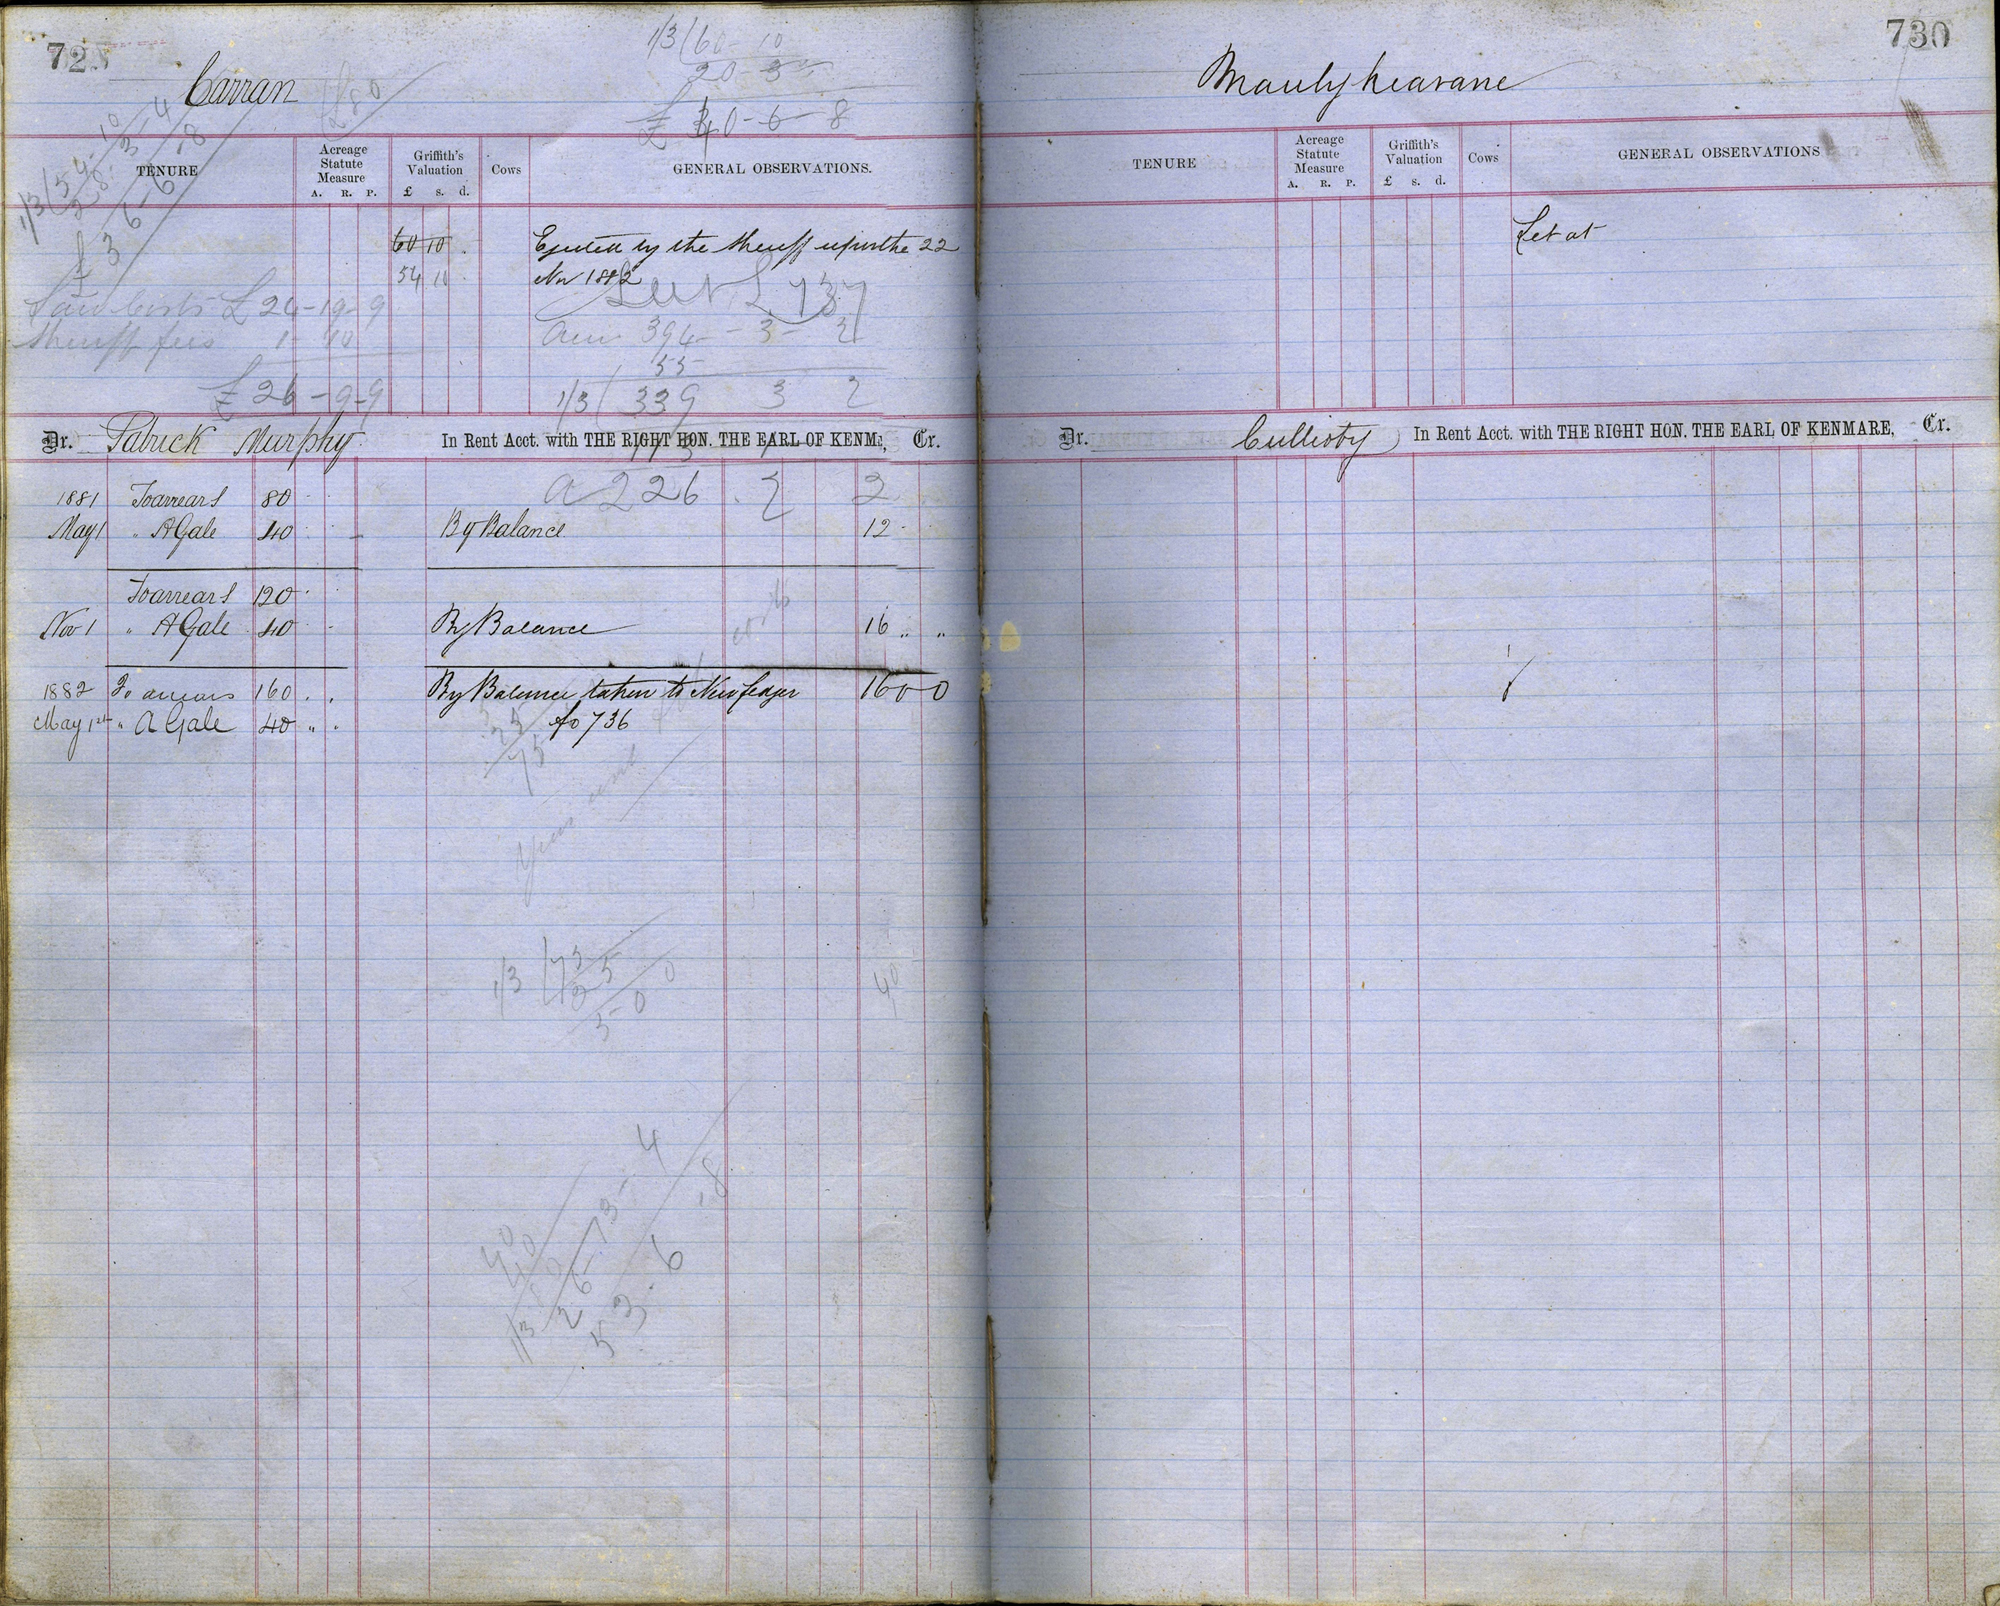 72
Carran
1/3 (60 - 10
20 - 3
£ 40 - 6 - 8
£80
1/3 (54 - 10
- 3 - 4
£ 36 - 6 - 8
TENURE
Acreage Statute Measure
A. R. P.
Griffith's Valuation
£ s. d.
Cows
GENERAL OBSERVATIONS.
60 10 .
Ejected by the Sheriff upon the 22
54 10
Nov 1882
Law Costs £ 24 - 19 - 9
Sheriff fees 1 - 10
£ 26 - 9 - 9
£ 737
394 - 3 - 2
55
1/3 ( 339 3 2
Dr. Patrick Murphy In Rent Acct. with THE RIGHT HON. THE EARL OF KENM, Cr.
113
226
1881 To arrears 80
May 1 " A Gale 40
By Balance 12
To arrears 120
Nov 1 " A Gale 40
By Balance 16 " "
1882 To arrears 160 . .
By Balance taken to New Ledger 160 0 0
May 1st " A Gale 40 " "
fo 736
25
75
1/3 (75
25
50 0
40
40
40
1/3
26 - 13 - 4
53 . 6 . 8
730
Maulykeavane
TENURE
Acreage Statute Measure
A. R. P.
Griffith's Valuation
£ s. d.
Cows
GENERAL OBSERVATIONS
Let at
Dr. Cullioty In Rent Acct. with THE RIGHT HON. THE EARL OF KENMARE, Cr.